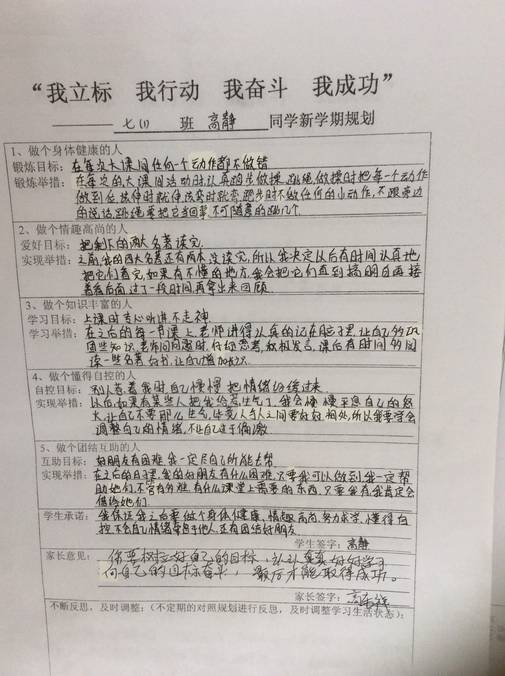 “我立标 我行动 我奋斗 我成功”
七(1) 班 高静 同学新学期规划
1、做个身体健康的人
锻炼目标：在每次大课间任何一个动作都不做错
锻炼举措：在每次的大课间活动时认真跑步做操跳绳做操时把每一个动作
做到位该伸时就伸该弯时就弯跑步时不做任何的小动作,不跟旁边
的说话跳绳要把它当回事,不可随意的跳几个.
2、做个情趣高尚的人
爱好目标：把剩下的两大名著读完.
实现举措：之前,我的四大名著还有两本没读完,所以我决定以后有时间认真地
把它们看完,如果有不懂的地方,我会把它们直到搞明白再接
着看后面,过了一段时间,再拿出来回顾.
3、做个知识丰富的人
学习目标：上课时专心听讲,不走神
学习举措：在之后的每一节课上,老师讲得认真的记在脑子里,让自己
这些知识,老师问问题时,仔细思考,积极发言,课后有时间多阅
读一些名著右书,让自己增加知识.
4、做个懂得自控的人
自控目标：别人惹着我时自己慢慢把情绪缓过来.
实现举措：以后,如果有某些人把我给惹生气了,我会慢慢平息自己的怒
火,让自己不要那么生气,毕竟人与人之间要好好相处,所以需要学会
调整自己的情绪,不让自己过于偏激
5、做个团结互助的人
互助目标：好朋友有困难,我一定尽自己所能去帮
实现举措：在之后的日子里,我的好朋友有什么困难,只要我可以做到我一定帮
助她们,不管有多难,有什么课堂上需要的东西,只要我有我肯定会
借给她们.
学生承诺：我保证我之后要做个身体健康、情趣高尚,努力求学,懂得自
控,不急自己情绪牵至于他人,还有团结好朋友.
学生签字：高静
家长意见：你要树立好自己的目标,认认真真好好学习
向自己的目标奋斗,最后才能取得成功。
家长签字：
不断反思，及时调整：（不定期的对照规划进行反思，及时调整学习生活状态）：